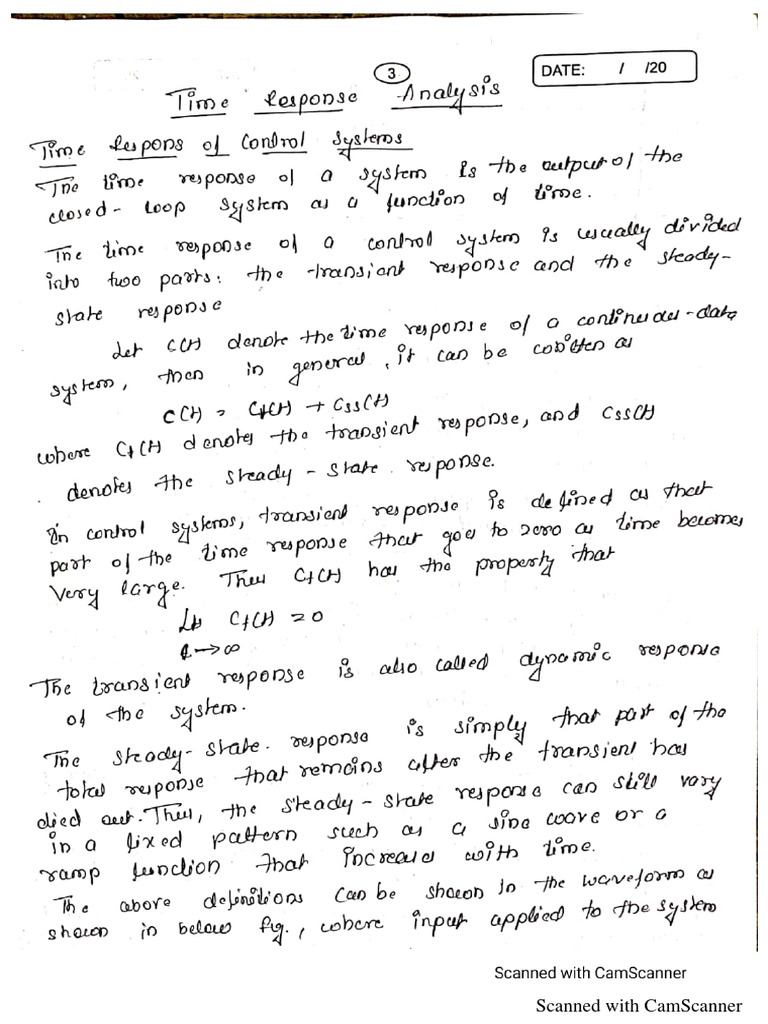 3
DATE: / /20
Time Response Analysis
Time Respons of Control Systems
The time response of a system is the output of the
closed-loop system as a function of time.
The time response of a control system is usually divided
into two parts: the transient response and the steady-
state response
Let C(t) denote the time response of a continuous-data
system, then in general, it can be written as
C(t) = Ct(t) + Css(t)
where Ct(t) denotes the transient response, and Css(t)
denotes the steady-state response.
In control systems, transient response is defined as that
part of the time response that goes to zero as time becomes
very large. Thus Ct(t) has the property that
Lt Ct(t) = 0
t→∞
The transient response is also called dynamic response
of the system.
The steady-state response is simply that part of the
total response that remains after the transient has
died out. Thus, the steady-state response can still vary
in a fixed pattern such as a sine wave or a
ramp function that increases with time.
The above definitions can be shown in the waveform as
shown in below fig., where input applied to the system
Scanned with CamScanner
Scanned with CamScanner